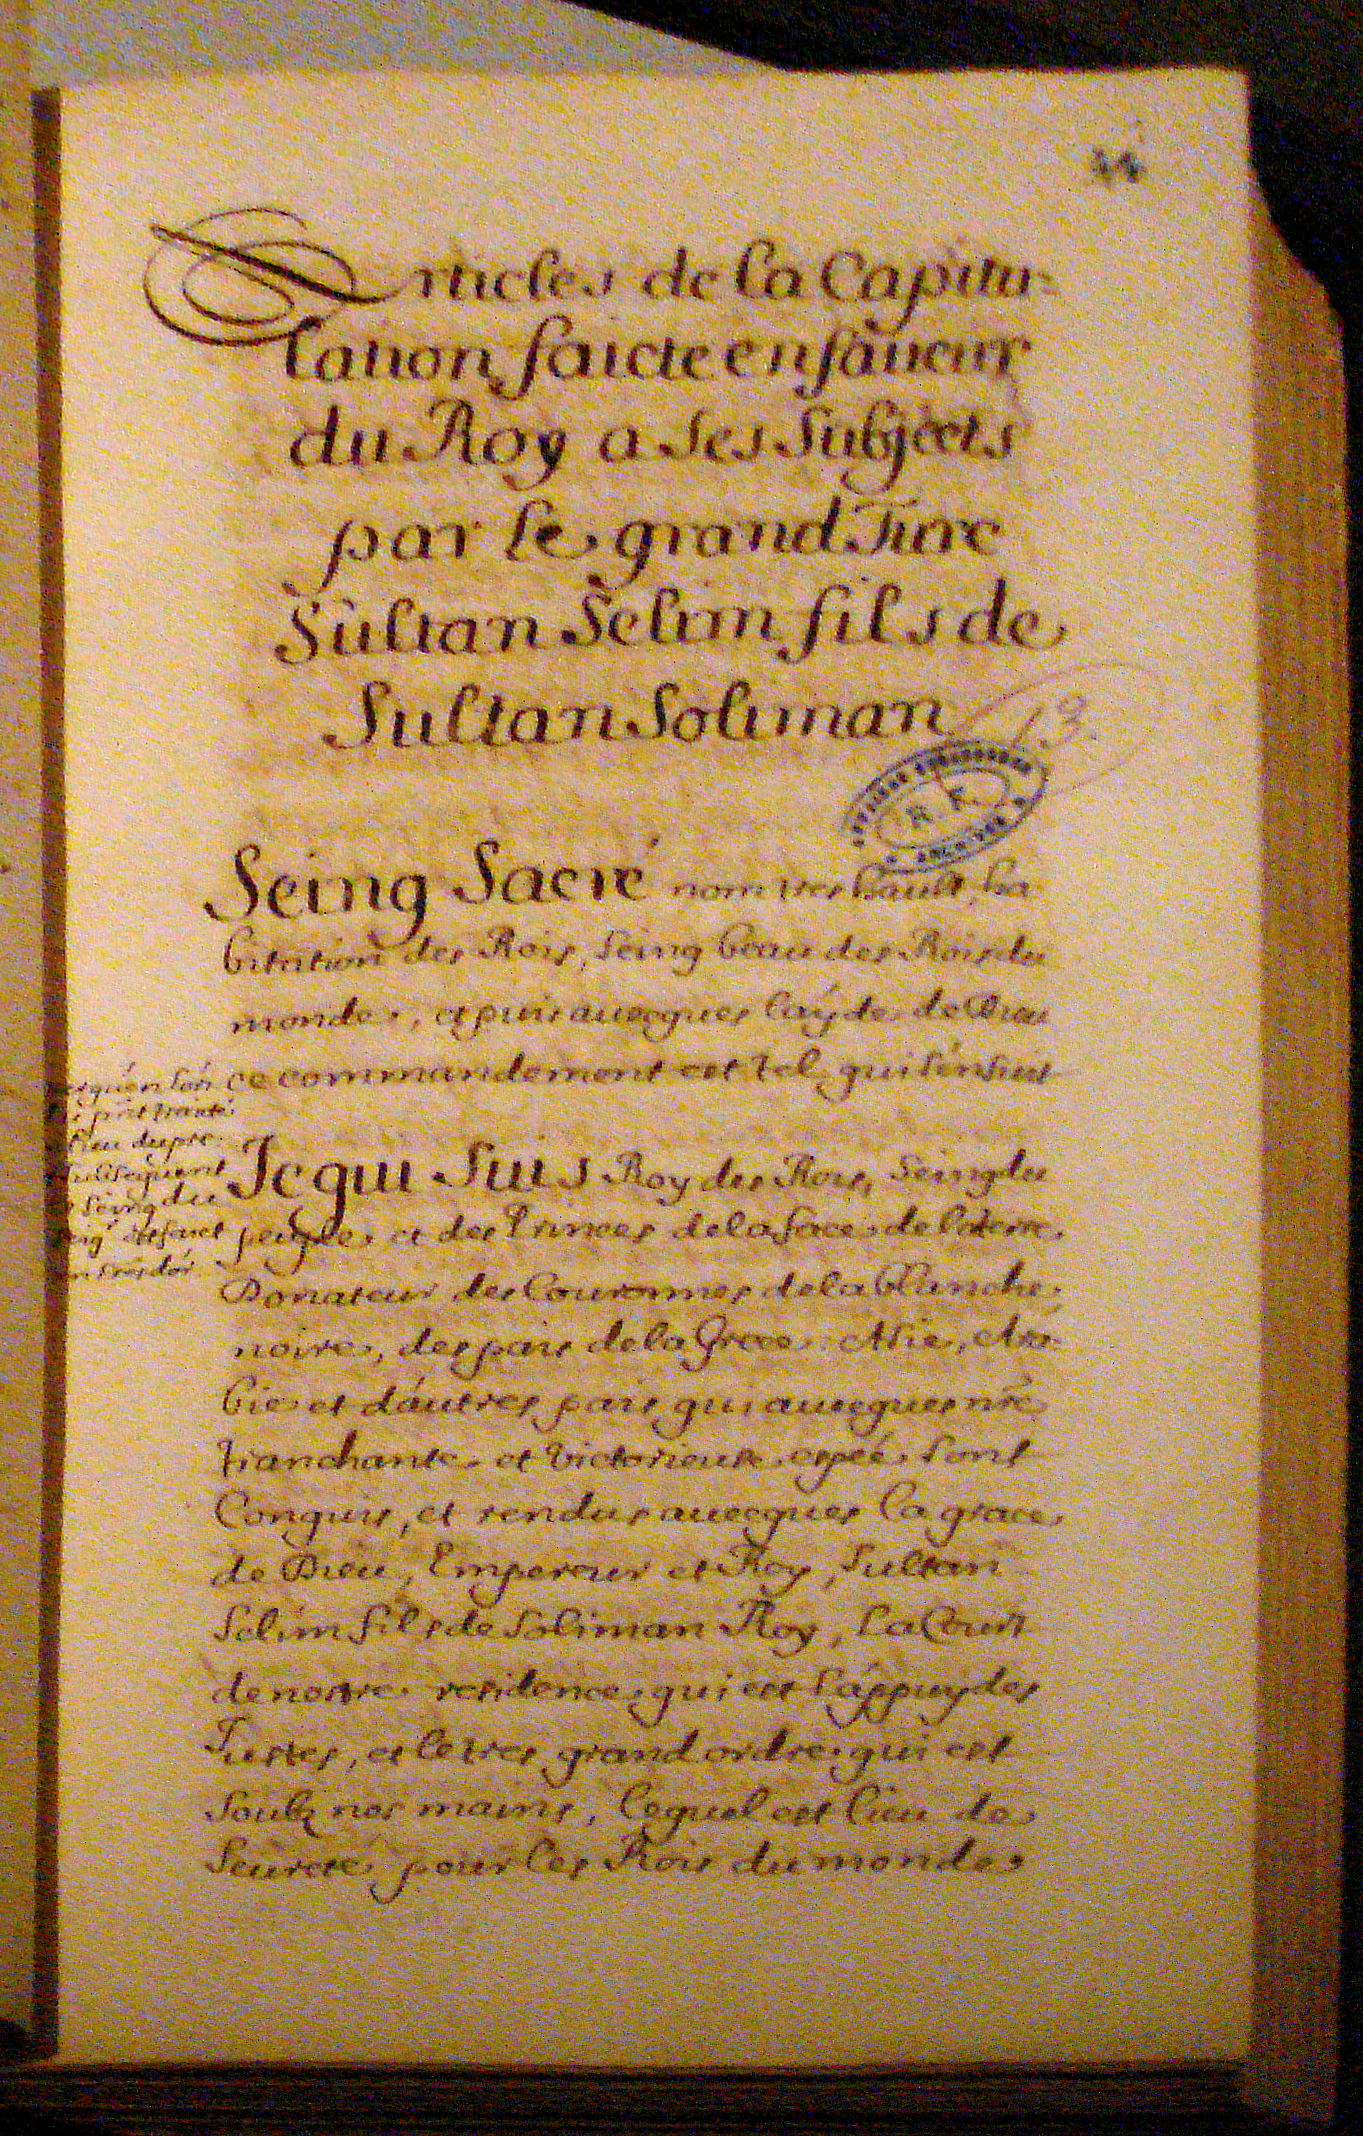 Articles de la Capitu-
lation faicte en faueur
du Roy a ses Subjects
par le grand Turc
Sultan Selim fils de
Sultan Soliman
13
R. F.
Seing Sacré nom tres hault, ha
bitation des Rois, seing beau des Rois du
monde, et puis auecques l'ayde de Dieu
ce commandement est tel qui s'ensuit
lieu du
seing du
Je qui suis Roy des Rois, seing du
peuple, et des Princes de la face de la terre,
Donateur des Couronnes de la blanche,
noire, des pais de la Grece Asie, Ara-
bie et d'autres pais qui auecques nre
tranchante et victorieuse espée sont
Conquis, et rendus auecques la grace
de Dieu, Empereur et Roy, Sultan
Selim fils de Soliman Roy, La Court
de nostre residence, qui est l'appuy des
Justes, et le tres grand ordre qui est
soubz nos mains, lequel est lieu de
seureté pour les Rois du monde,